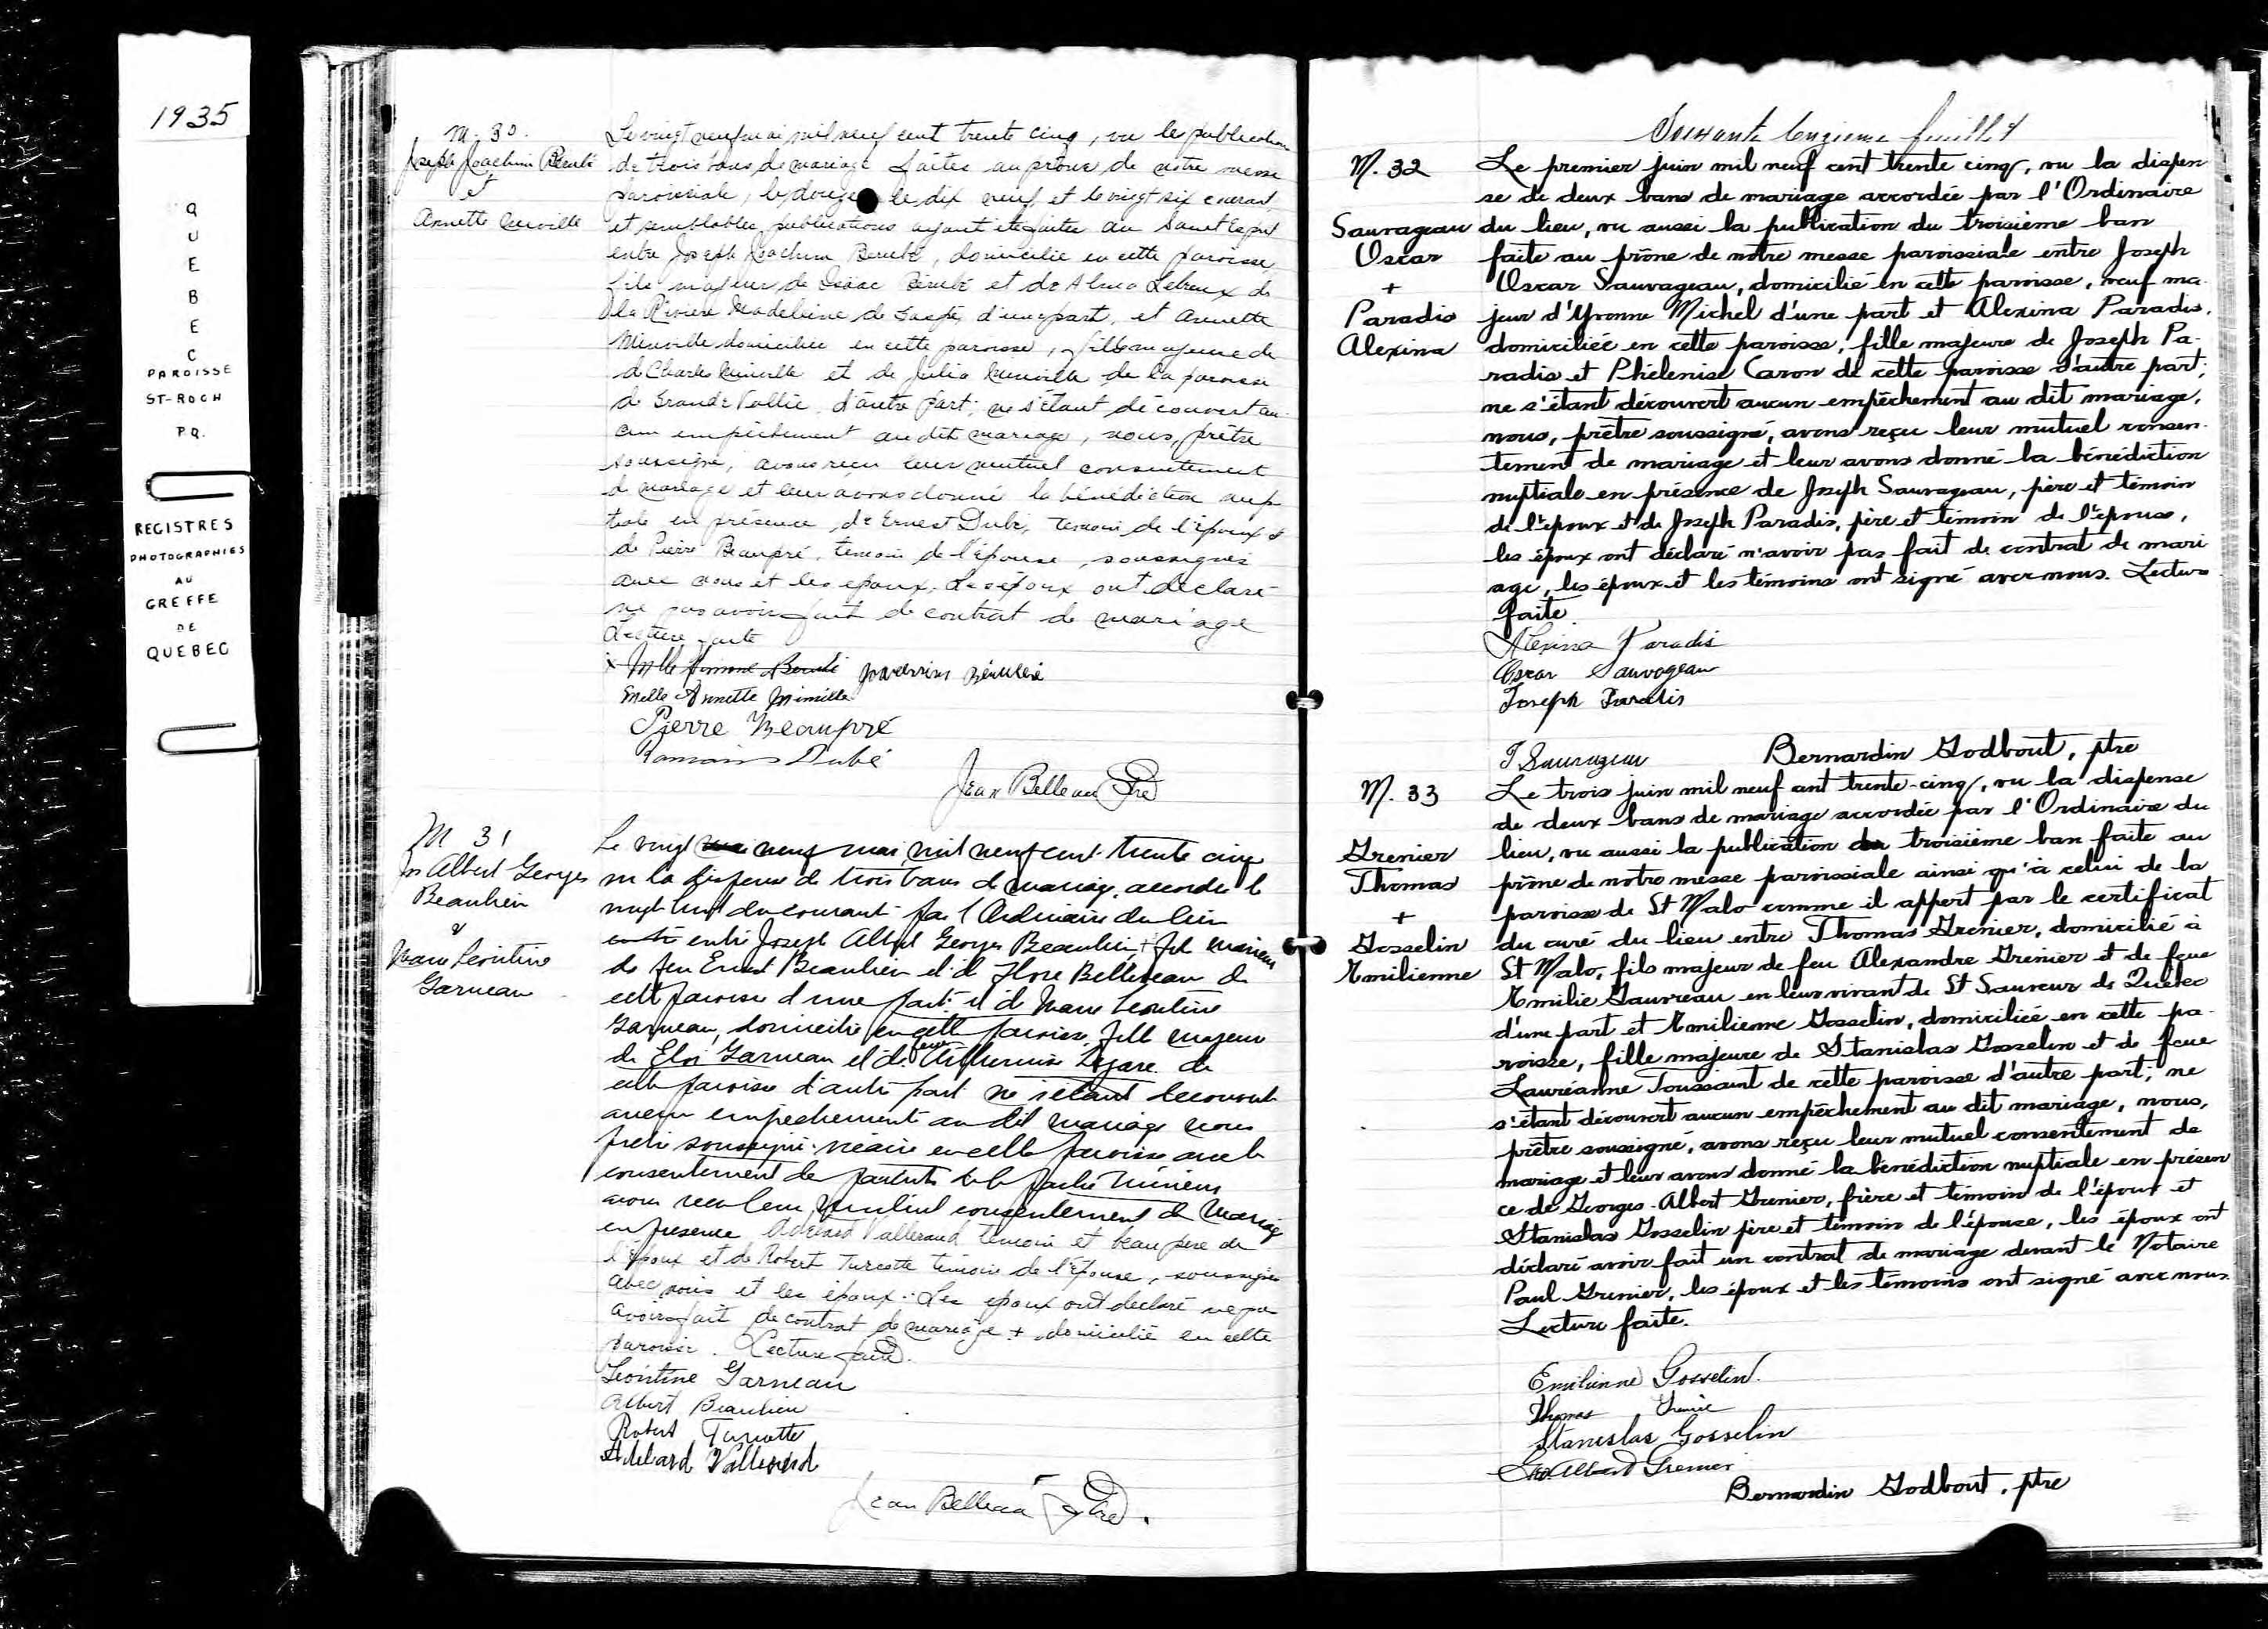 1935
QUEBEC
PAROISSE
ST-ROCH
P.Q.
REGISTRES
PHOTOGRAPHIES
AU
GREFFE
DE
QUEBEC
M. 30.
Joseph Joachim Bérubé
et
Annette Minville
Le vingt neuf mai mil neuf cent trente cinq, vu les publications
de trois bans de mariage faites au prône de notre messe
paroissiale, le douze le dix neuf et le vingt six courant,
et semblables publications ayant été faites au Saint Esprit
entre Joseph Joachim Bérubé, domicilié en cette paroisse,
fils majeur de Isaac Bérubé et de Alma Lebreux de
la Rivière Madeleine de Gaspé, d'une part, et Annette
Minville domiciliée en cette paroisse, fille majeure de
de Charles Minville et de Julia Minville de la paroisse
de Grande Vallée, d'autre part; ne s'étant découvert au-
cun empêchement au dit mariage, nous, prêtre
soussigné, avons reçu leur mutuel consentement
de mariage et leur avons donné la bénédiction nup-
tiale en présence de Ernest Dubé, témoin de l'époux &
de Pierre Beaupré, témoin de l'épouse, soussignés
avec nous et les époux. Les époux ont déclaré
ne pas avoir fait de contrat de mariage
Lecture faite
Melle Annette Minville
Pierre Beaupré
Dubé
Jean Belleau Ptre
M 31
Jos Albert Georges
Beaulieu
&
Marie Léontine
Garneau
Le vingt neuf mai mil neuf cent trente cinq
vu la dispense de trois bans de mariage accordée le
vingt huit du courant par l'Ordinaire du lieu
entre Joseph Albert Georges Beaulieu + fils mineur
de feu Ernest Beaulieu et de Flore Bellereau de
cette paroisse d'une part et de Marie Léontine
Garneau, domiciliée en cette paroisse, fille majeure
de Eloi Garneau et de feue Légaré de
cette paroisse d'autre part ne s'étant découvert
aucun empêchement au dit mariage nous
prêtre soussigné vicaire en cette paroisse avec le
consentement de parents de la partie mineure
avons reçu leur mutuel consentement de mariage
en présence Adélard Vallerand témoin et beau père de
l'époux et de Robert Turcotte témoin de l'épouse, soussignés
avec nous et les époux. Les époux ont déclaré ne pas
avoir fait de contrat de mariage + domicilié en cette
paroisse. Lecture faite.
Léontine Garneau
Albert Beaulieu
Robert Turcotte
Adélard Vallerand
Jean Belleau Ptre.
feuillet
M. 32
Sauvageau
Oscar
+
Paradis
Alexina
Le premier juin mil neuf cent trente cinq, vu la dispen
se de deux bans de mariage accordée par l'Ordinaire
du lieu, vu aussi la publication du troisième ban
faite au prône de notre messe paroissiale entre Joseph
Oscar Sauvageau, domicilié en cette paroisse, veuf ma-
jeur d'Yvonne Michel d'une part et Alexina Paradis,
domiciliée en cette paroisse, fille majeure de Joseph Pa-
radis et Phélenise Caron de cette paroisse d'autre part;
ne s'étant découvert aucun empêchement au dit mariage,
nous, prêtre soussigné, avons reçu leur mutuel consen-
tement de mariage et leur avons donné la bénédiction
nuptiale en présence de Joseph Sauvageau, père et témoin
de l'époux et de Joseph Paradis, père et témoin de l'épouse,
les époux ont déclaré n'avoir pas fait de contrat de mari
age, les époux et les témoins ont signé avec nous. Lecture
faite.
Alexina Paradis
Oscar Sauvageau
Joseph Paradis
J Sauvageau
Bernardin Godbout, ptre
M. 33
Grenier
Thomas
+
Gosselin
Emilienne
Le trois juin mil neuf cent trente-cinq, vu la dispense
de deux bans de mariage accordée par l'Ordinaire du
lieu, vu aussi la publication du troisième ban faite au
prône de notre messe paroissiale ainsi qu'à celui de la
paroisse de St Malo comme il appert par le certificat
du curé du lieu entre Thomas Grenier, domicilié à
St Malo, fils majeur de feu Alexandre Grenier et de feue
Emilie Gauvreau en leur vivant de St Sauveur de Québec
d'une part et Emilienne Gosselin, domiciliée en cette pa-
roisse, fille majeure de Stanislas Gosselin et de feue
Lauréanne Toussaint de cette paroisse d'autre part; ne
s'étant découvert aucun empêchement au dit mariage, nous,
prêtre soussigné, avons reçu leur mutuel consentement de
mariage et leur avons donné la bénédiction nuptiale en présen
ce de Georges-Albert Grenier, frère et témoin de l'époux et
Stanislas Gosselin père et témoin de l'épouse, les époux ont
déclaré avoir fait un contrat de mariage devant le Notaire
Paul Grenier, les époux et les témoins ont signé avec nous.
Lecture faite.
Emilienne Gosselin.
Thomas Grenier
Stanislas Gosselin
Geo Albert Grenier
Bernardin Godbout, ptre